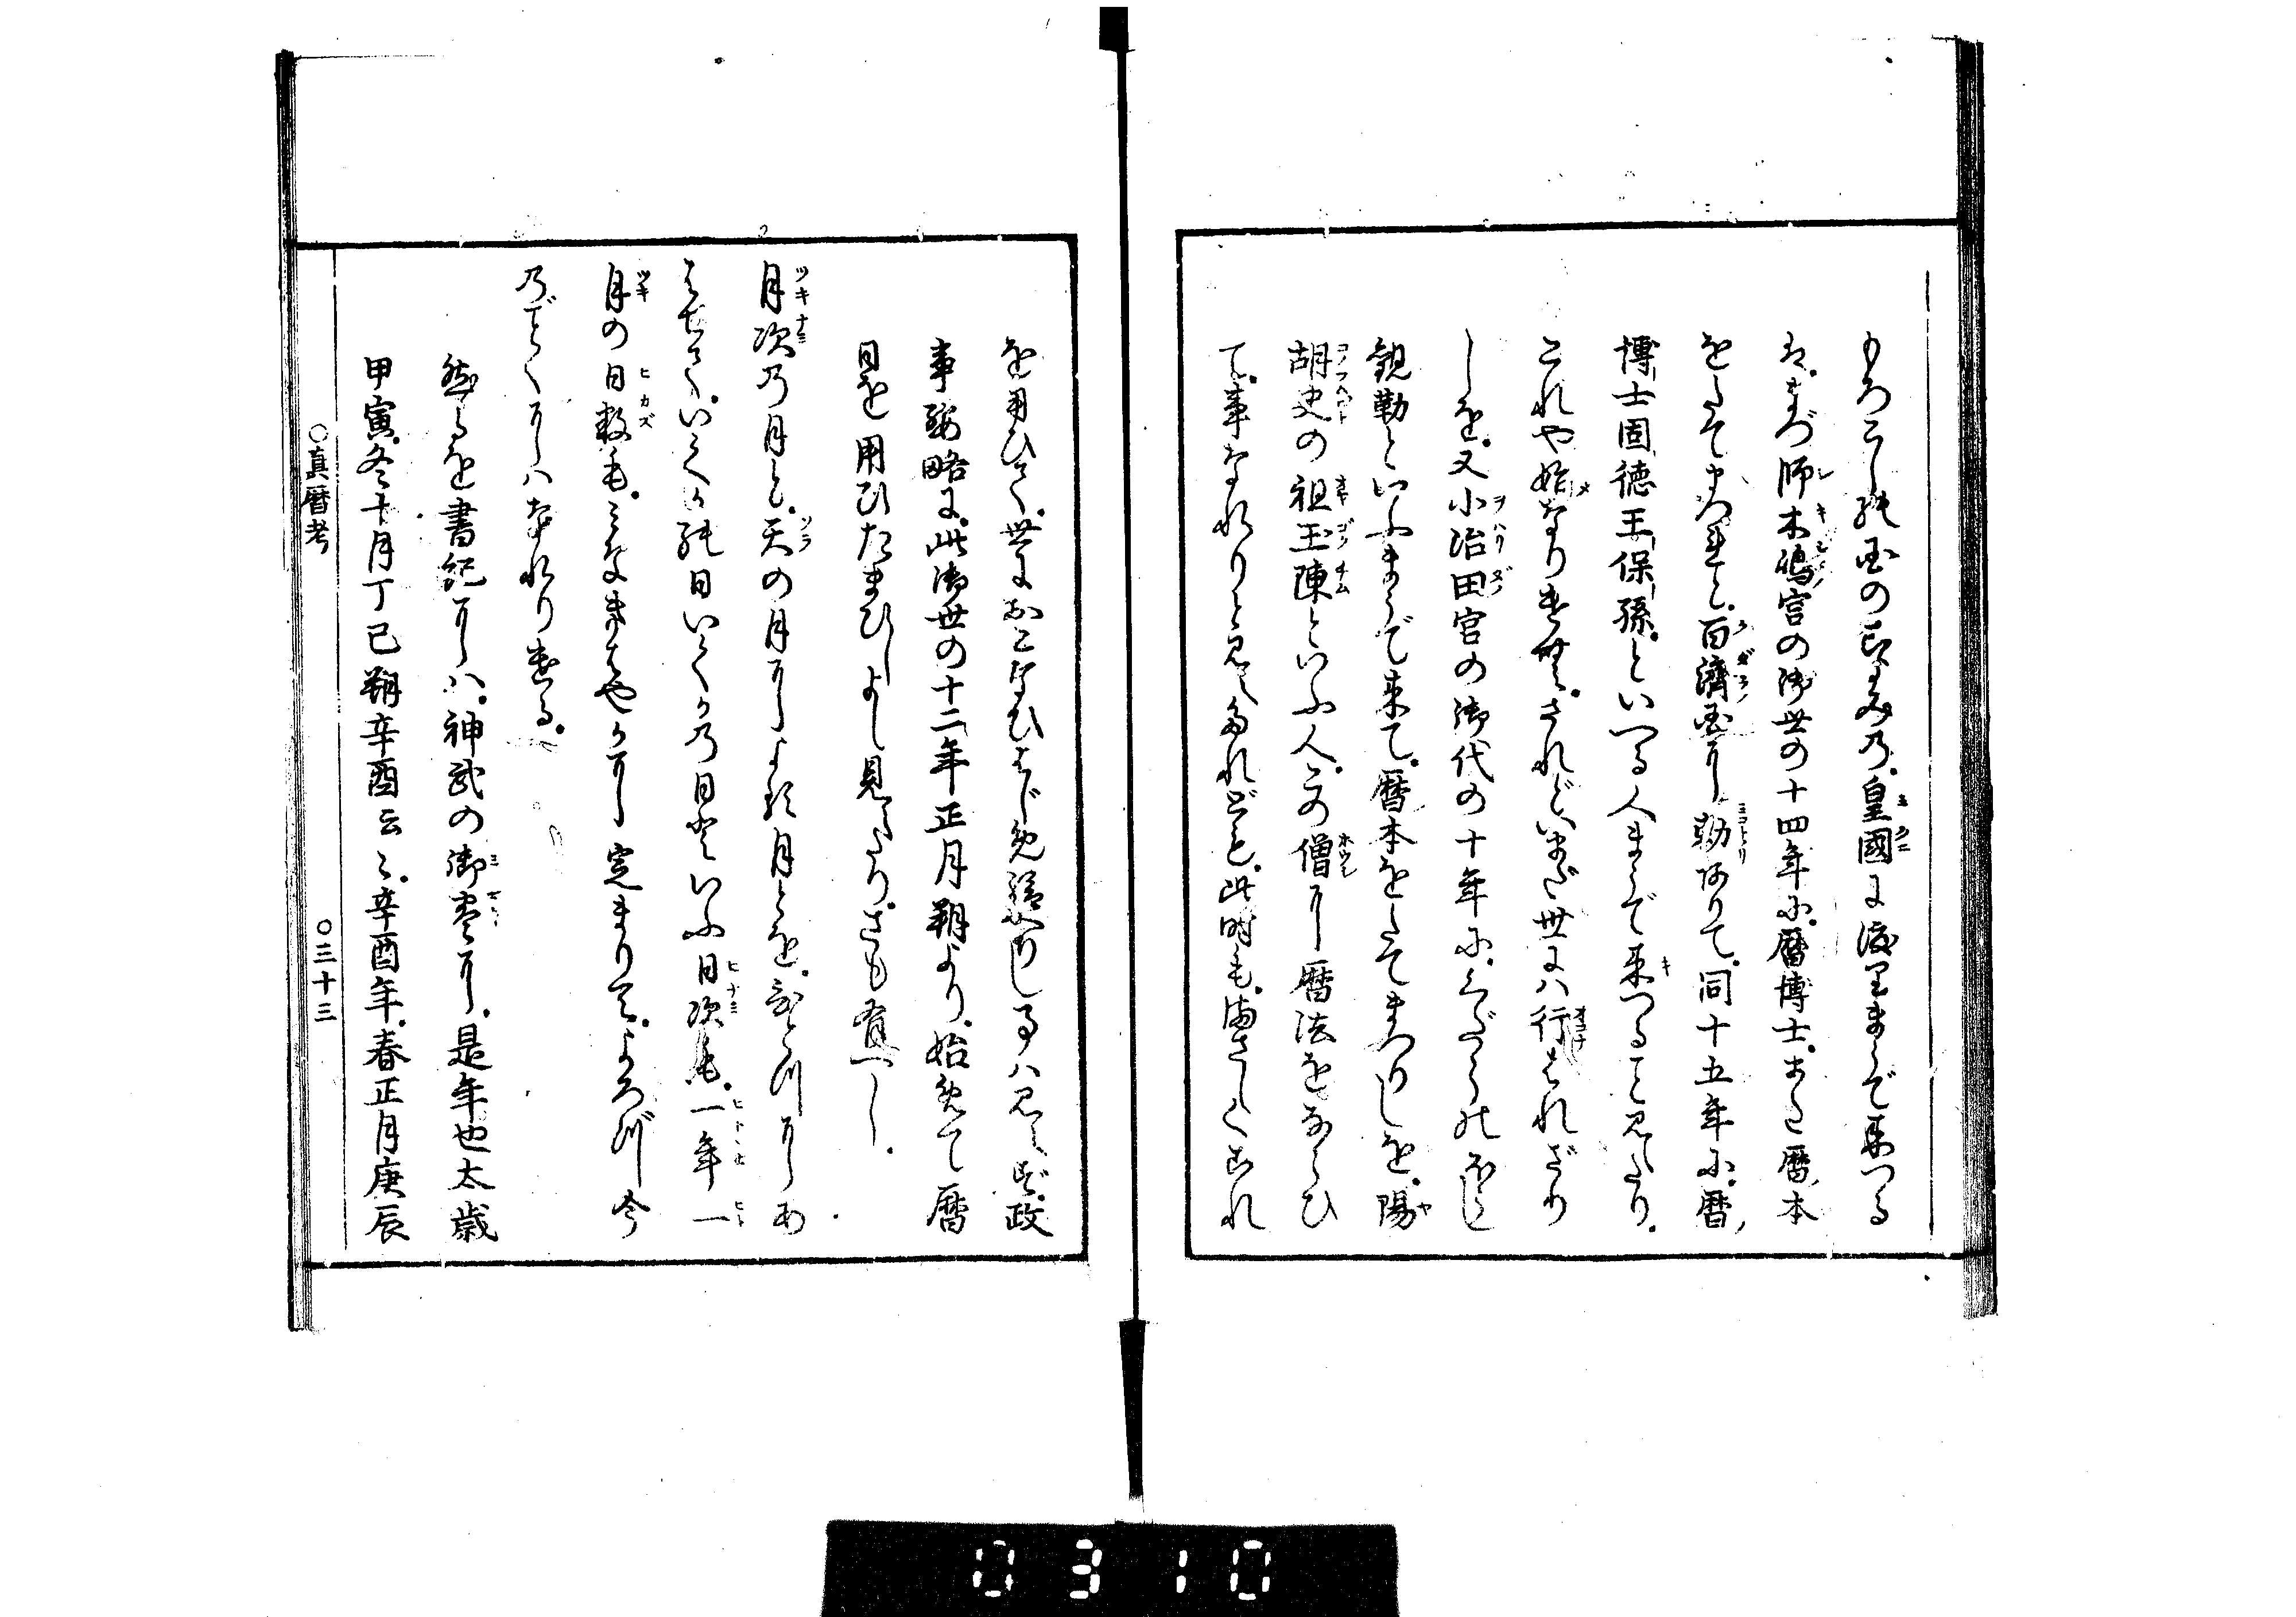 もろこし国のこよみの、皇國に渡りまうで来つる
は、まづ師木嶋宮の御世の十四年に、暦博士、また暦本
をたてまつれと、百濟国に勅ありて、同十五年に、暦
博士固徳王保孫、といへる人まうで来つること見えたり、
これや始なりけむ、されどいまだ世には行はれざり
しを、又小治田宮の御代の十年に、くだらのほふし
觀勒といふまうで来て、暦本をたてまつりしを、陽
胡史の祖玉陳といふ人、かの僧に暦法をならひ
て、事なれりと見えたれども、此時も、まさしくこれ
を用ひて、世におこなひはじめ給へりし事は見えず、政
事要略に、此御世の十二年正月朔より、始めて暦
日を用ひたまひしよし見えたり、さも有べし、
月次の月と、天の月によれる月とを、ひとつにあ
はせて、いくかの日いくかの日といふ日次も、一年一
月の日数も、みなあきらかに定まりて、よろづ今
のごとくにはなれりける、
然るを書紀には、神武の御巻に、是年也太歳
甲寅、冬十月丁巳朔辛酉云々、辛酉年、春正月庚辰
○真暦考　○三十三
0310